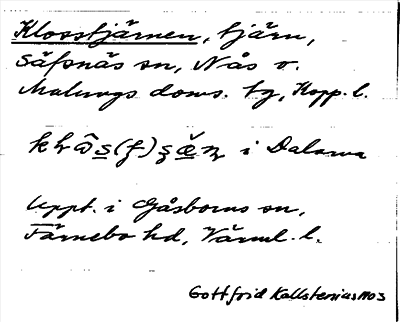 Klosstjärnen, tjärn,
Säfsnäs sn, Nås o.
Malungs doms. tg, Kopp. l.
i Dalarna
Uppt. i Gåsborns sn,
Färnebo hd, Värml. l.
Gottfrid Kallstenius 1903